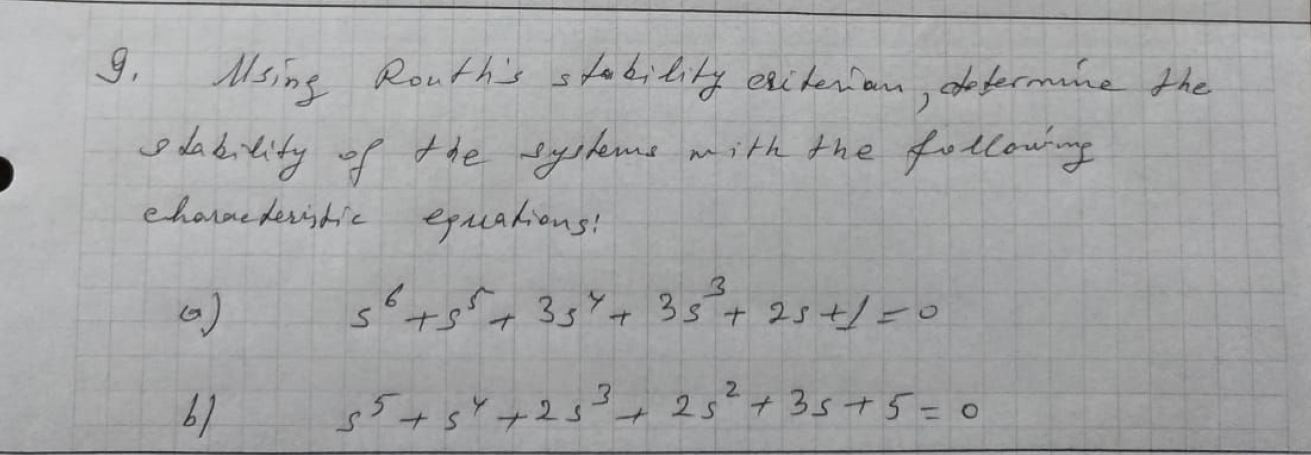 9. Using Routh's stability criterion, determine the
stability of the systems with the following
characteristic equations:
a) s⁶ + s⁵ + 3s⁴ + 3s³ + 2s + 1 = 0
b) s⁵ + s⁴ + 2s³ + 2s² + 3s + 5 = 0